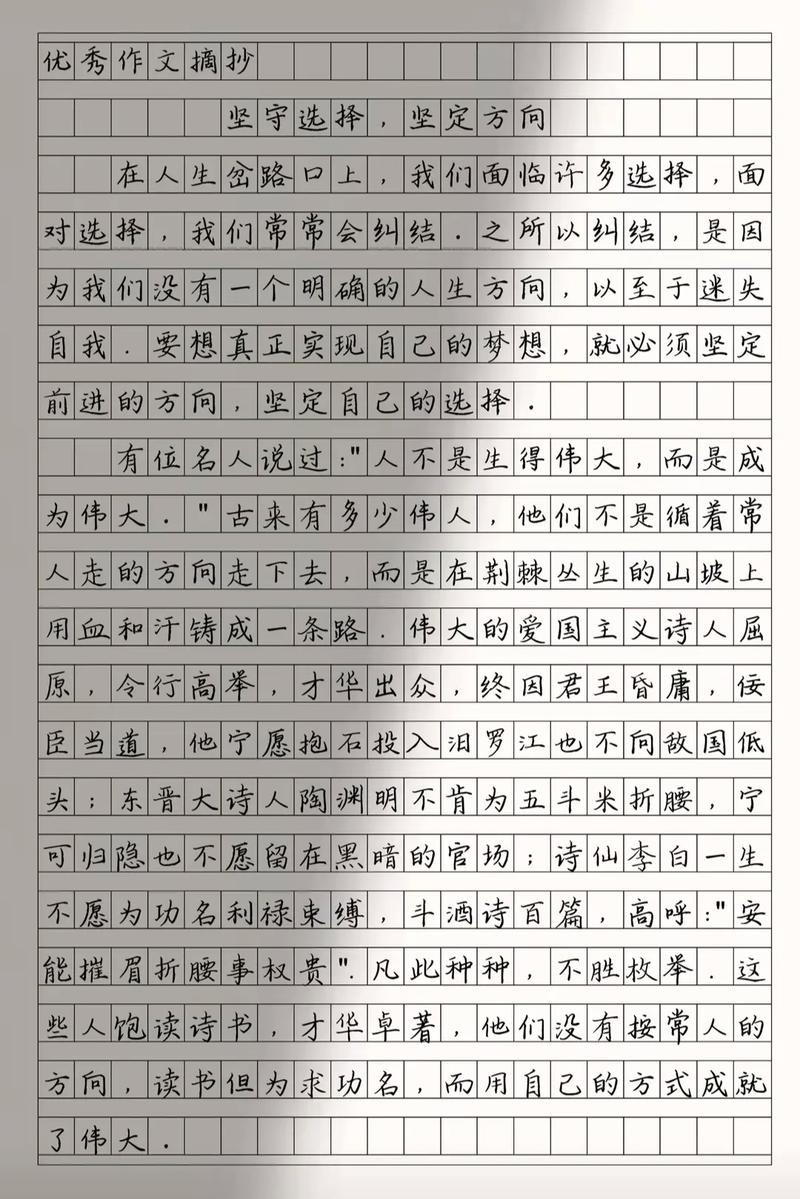 优秀作文摘抄
坚守选择，坚定方向
在人生岔路口上，我们面临许多选择，面
对选择，我们常常会纠结．之所以纠结，是因
为我们没有一个明确的人生方向，以至于迷失
自我．要想真正实现自己的梦想，就必须坚定
前进的方向，坚定自己的选择．
有位名人说过："人不是生得伟大，而是成
为伟大．"古来有多少伟人，他们不是循着常
人走的方向走下去，而是在荆棘丛生的山坡上
用血和汗铸成一条路．伟大的爱国主义诗人屈
原，令行高举，才华出众，终因君王昏庸，佞
臣当道，他宁愿抱石投入汨罗江也不向敌国低
头；东晋大诗人陶渊明不肯为五斗米折腰，宁
可归隐也不愿留在黑暗的官场；诗仙李白一生
不愿为功名利禄束缚，斗酒诗百篇，高呼："安
能摧眉折腰事权贵"．凡此种种，不胜枚举．这
些人饱读诗书，才华卓著，他们没有按常人的
方向，读书但为求功名，而用自己的方式成就
了伟大．